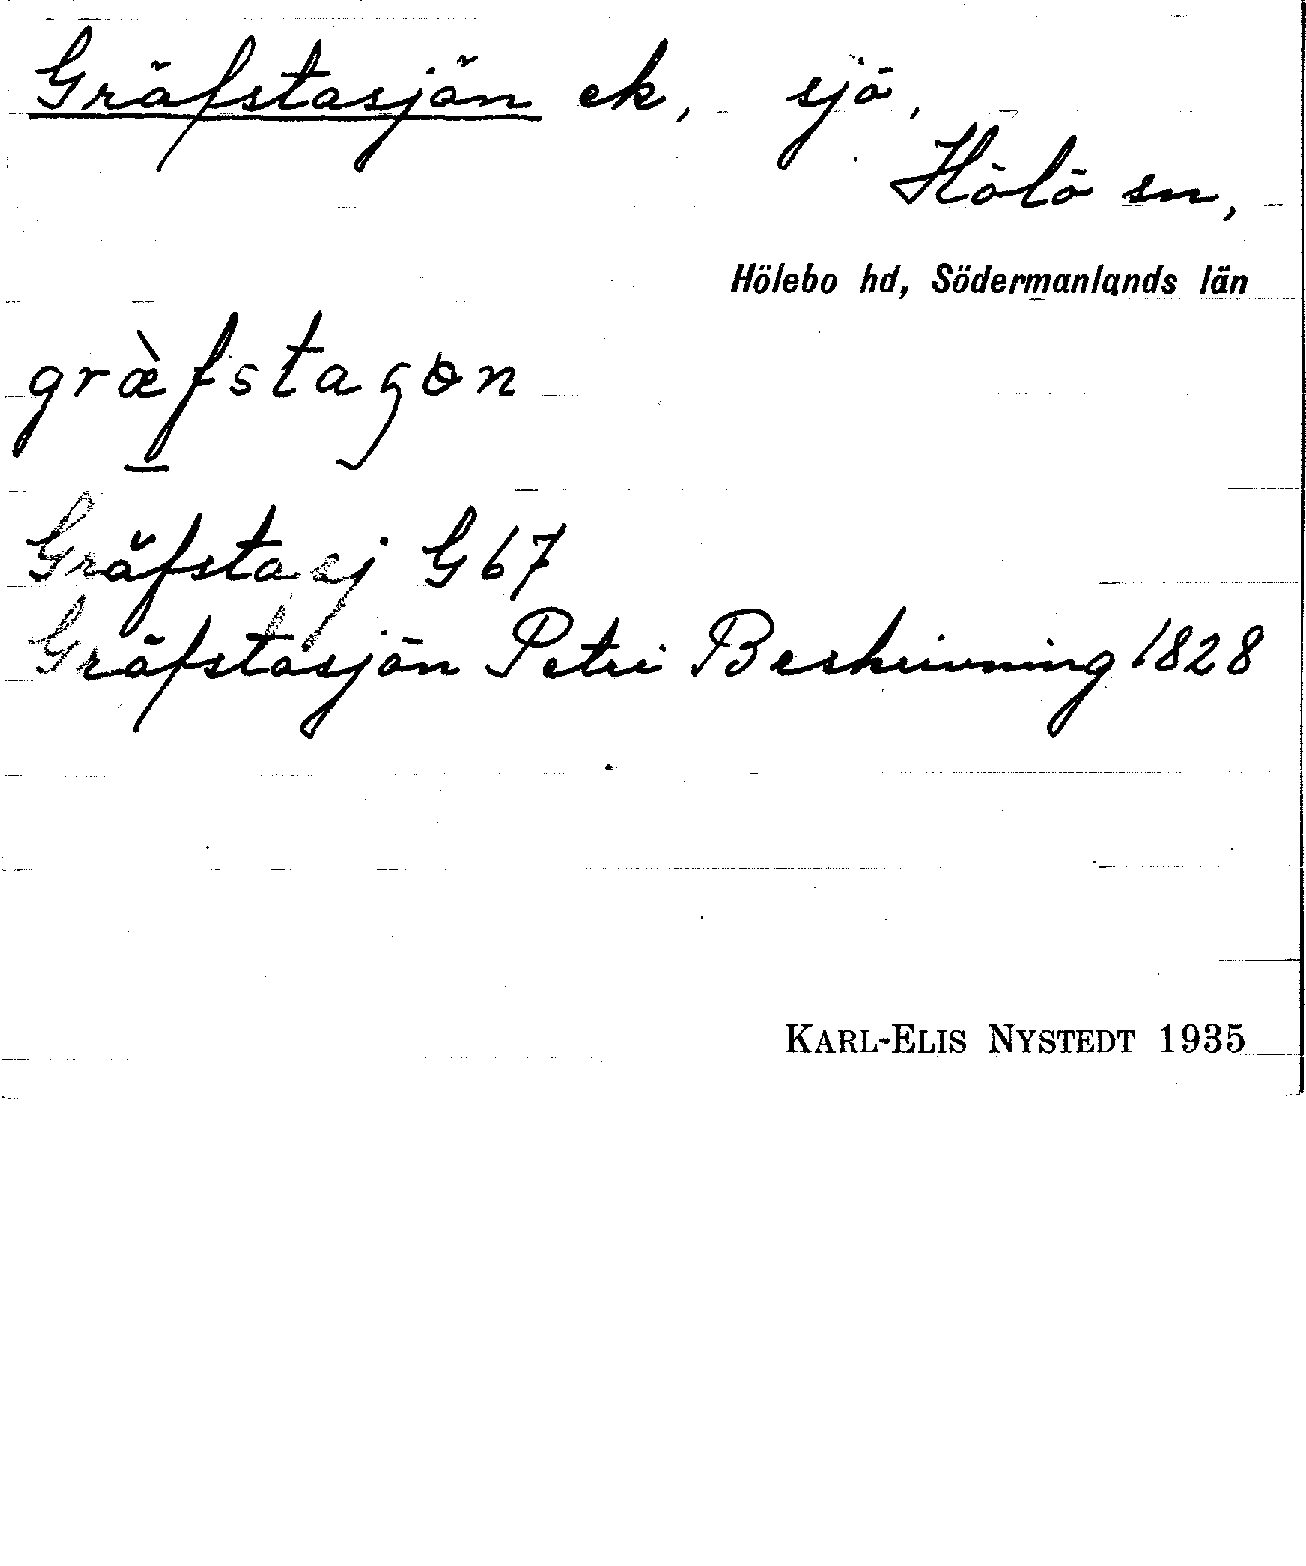 Gräfstasjön ek, sjö,
Hölö sn,
Hölebo hd, Södermanlands län
græ̀fstaʂɵn
Gräfsta sj G 67
Gräfstasjön Petri Beskrivning 1828
KARL-ELIS NYSTEDT 1935